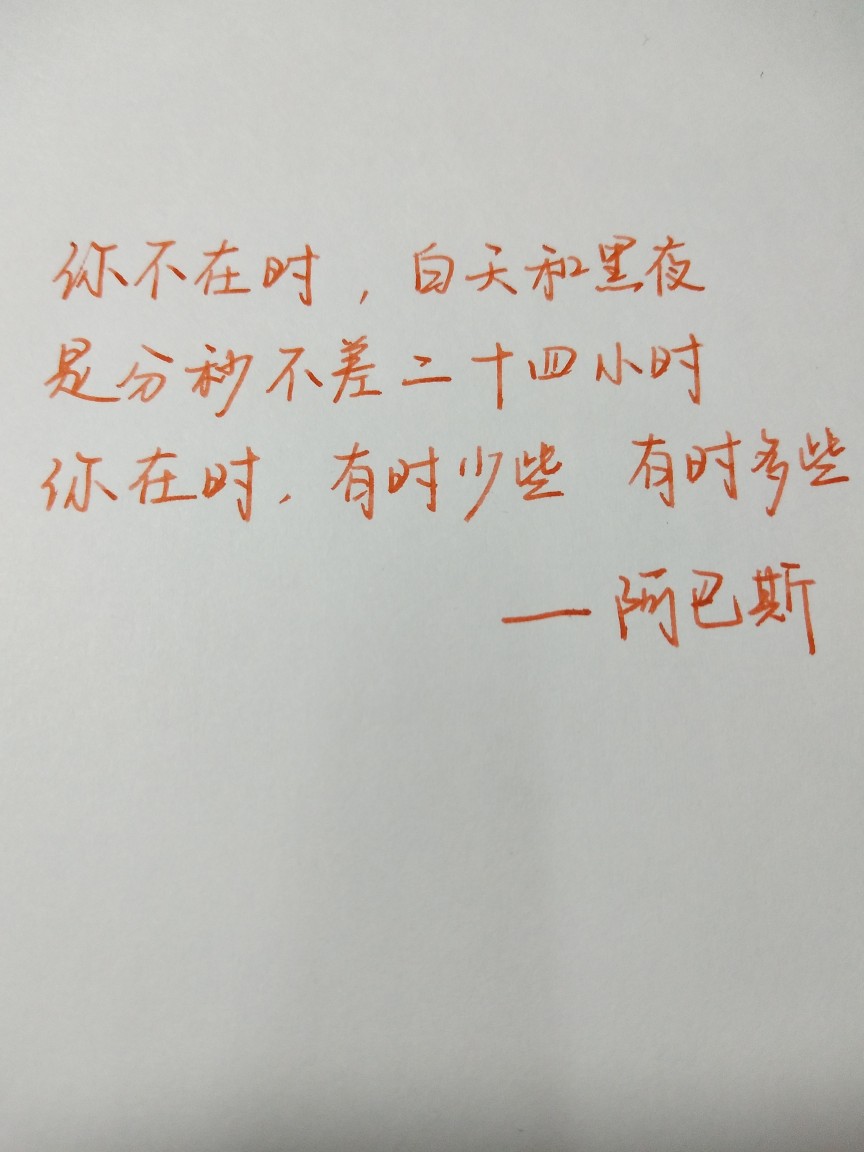 你不在时，白天和黑夜
是分秒不差二十四小时
你在时，有时少些 有时多些
——阿巴斯